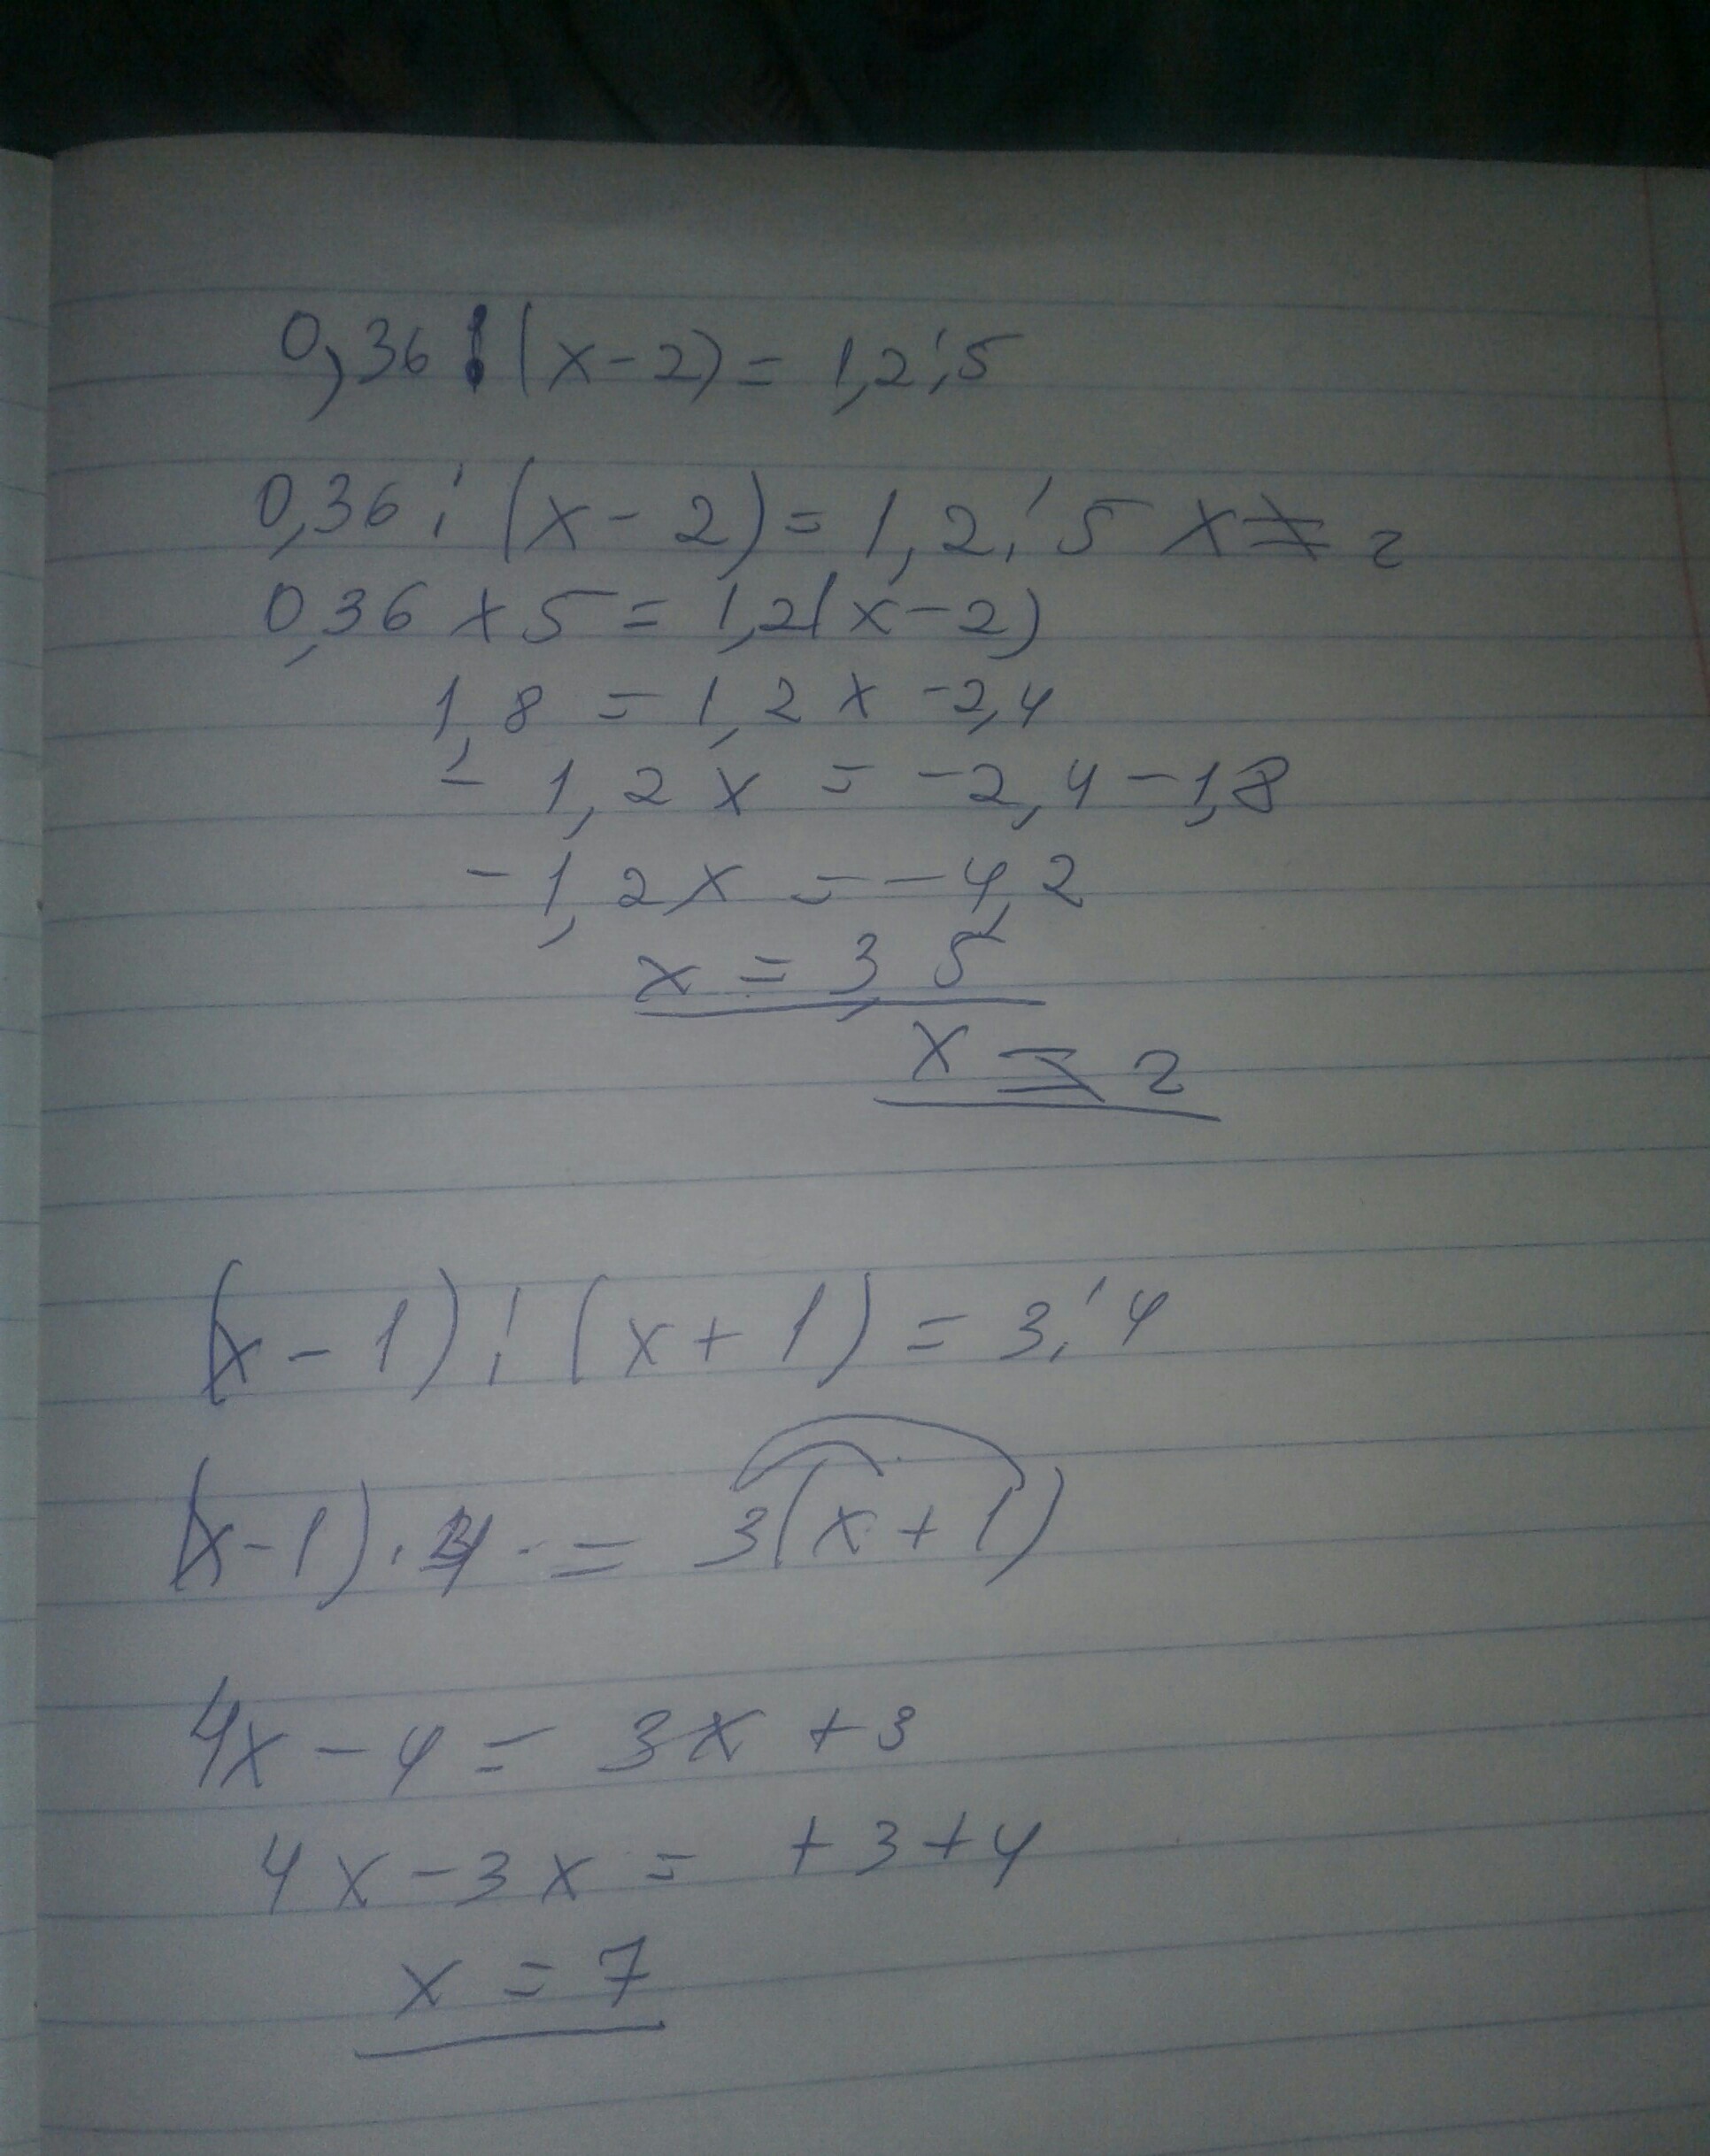 0,36 : (x-2) = 1,2 : 5
0,36 : (x - 2) = 1,2 : 5 x ≠ 2
0,36 x 5 = 1,2(x-2)
1,8 = 1,2x -2,4
- 1,2x = -2,4 -1,8
-1,2x = -4,2
x = 3,5
x ≠ 2
(x - 1) : (x + 1) = 3 : 4
(x-1) · 4 · = 3(x+1)
4x - 4 = 3x + 3
4x - 3x = +3+4
x = 7